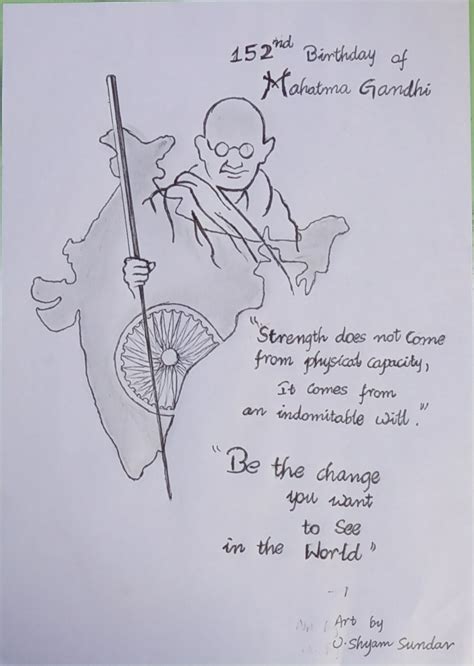 152nd Birthday of
Mahatma Gandhi
"Strength does not Come
from physical capacity,
It comes from
an indomitable will."
"Be the change
you want
to See
in the World"
- 1
Art by
J. Shyam Sundar